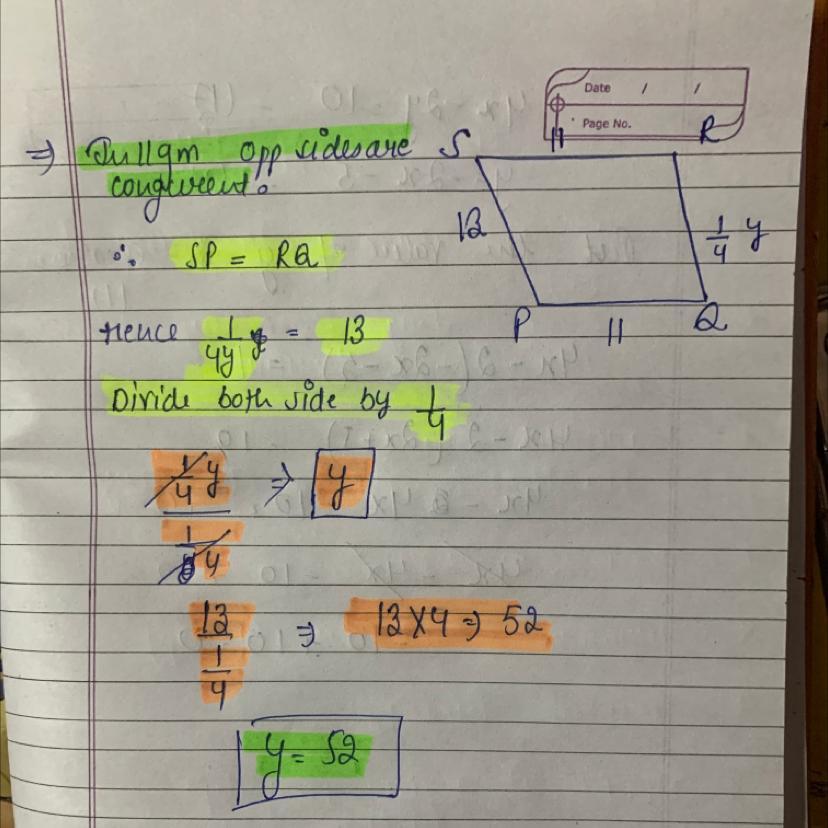 Date / /
Page No.
⇒ In llgm opp sides are
congruent.
S
11
R
13
1/4 y
P
11
Q
∴ SP = RQ
Hence 1/4y = 13
Divide both side by 1/4
1/4 y ⇒ y
1/4
13 ⇒ 13×4 ⇒ 52
1/4
y = 52